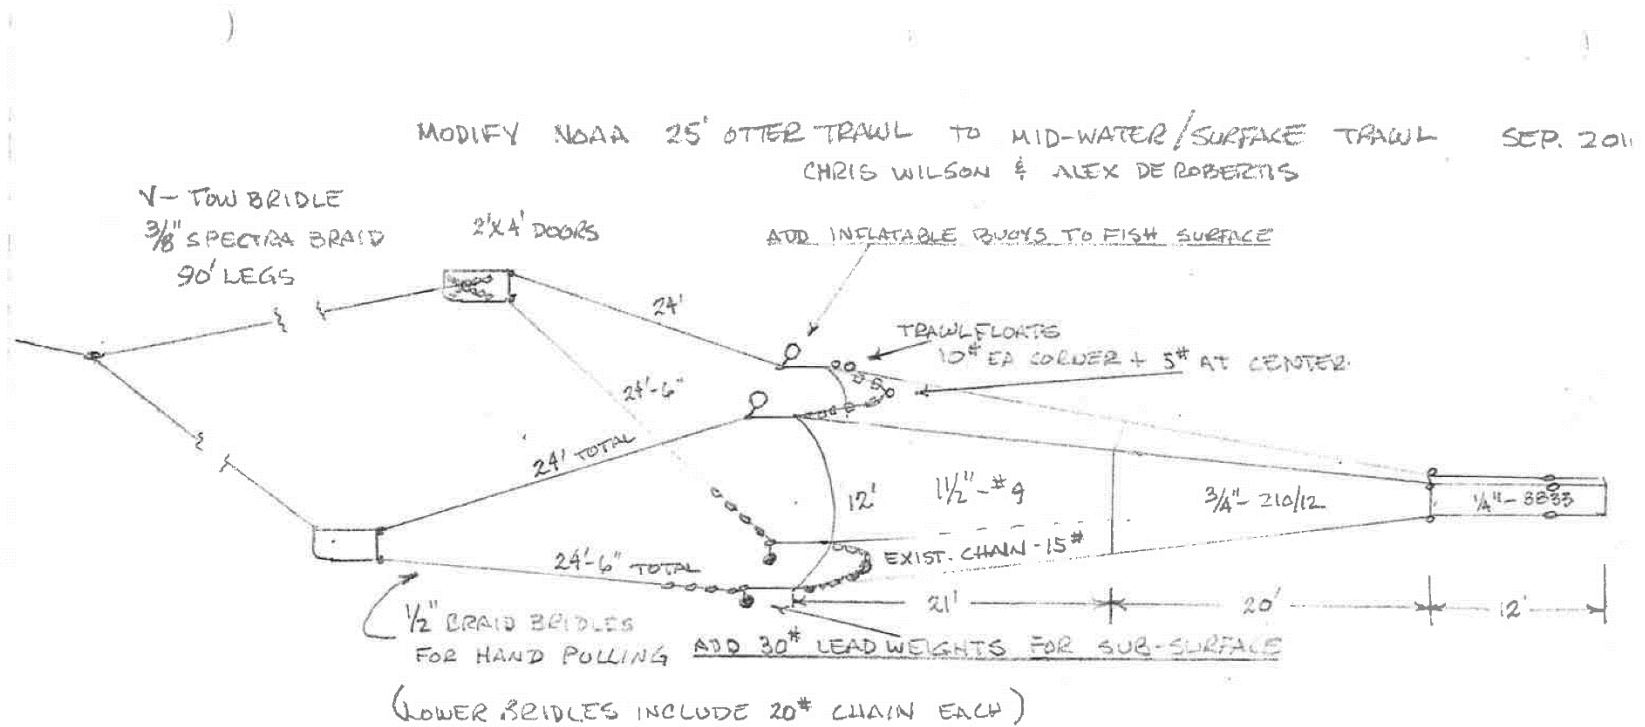 MODIFY NOAA 25' OTTER TRAWL TO MID-WATER/SURFACE TRAWL SEP. 2011
CHRIS WILSON & ALEX DE ROBERTIS
V-TOW BRIDLE
3/8" SPECTRA BRAID
90' LEGS
2'X4' DOORS
ADD INFLATABLE BUOYS TO FISH SURFACE
24'
TRAWL FLOATS
10# EA CORNER + 5# AT CENTER
24'-6"
24' TOTAL
12'
1 1/2"-#9
3/4"-210/12
1/4"-
EXIST. CHAIN-15#
24'-6" TOTAL
21'
20'
12'
1/2" BRAID BRIDLES
FOR HAND PULLING
ADD 30# LEAD WEIGHTS FOR SUB-SURFACE
(LOWER BRIDLES INCLUDE 20# CHAIN EACH)